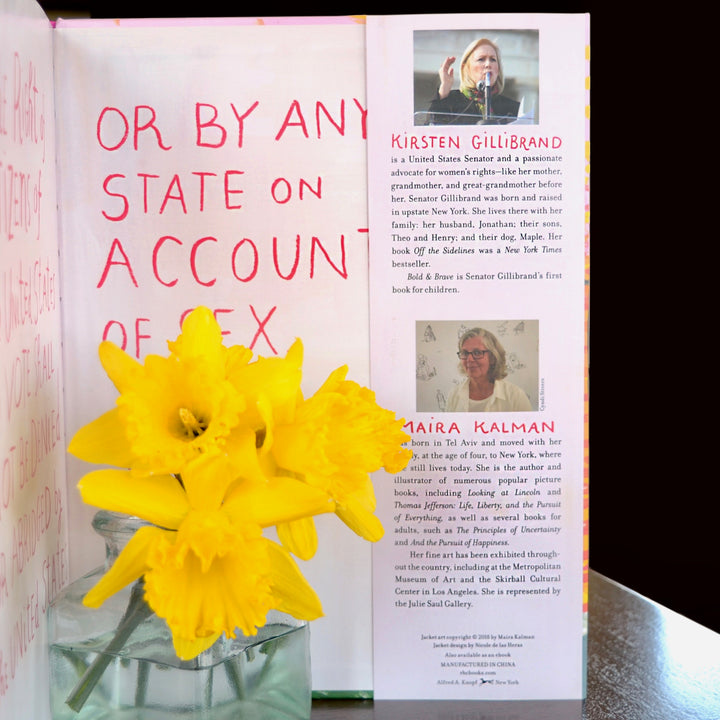 Right of
of
United States
VOTE SHALL
OR BY ANY
STATE ON
ACCOUNT
OF SEX
KIRSTEN GILLIBRAND
is a United States Senator and a passionate
advocate for women's rights—like her mother,
grandmother, and great-grandmother before
her. Senator Gillibrand was born and raised
in upstate New York. She lives there with her
family: her husband, Jonathan; their sons,
Theo and Henry; and their dog, Maple. Her
book Off the Sidelines was a New York Times
bestseller.
Bold & Brave is Senator Gillibrand's first
book for children.
Cyndi Stivers
MAIRA KALMAN
was born in Tel Aviv and moved with her
at the age of four, to New York, where
still lives today. She is the author and
illustrator of numerous popular picture
books, including Looking at Lincoln and
Thomas Jefferson: Life, Liberty, and the Pursuit
of Everything, as well as several books for
adults, such as The Principles of Uncertainty
and And the Pursuit of Happiness.
Her fine art has been exhibited through-
out the country, including at the Metropolitan
Museum of Art and the Skirball Cultural
Center in Los Angeles. She is represented by
the Julie Saul Gallery.
Jacket art copyright © 2018 by Maira Kalman
Jacket design by Nicole de las Heras
Also available as an ebook
MANUFACTURED IN CHINA
rhcbooks.com
Alfred A. Knopf New York